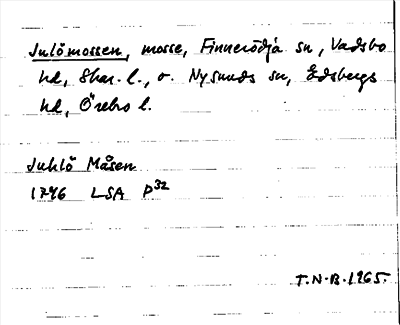 Julömossen, mosse, Finnerödja sn, Vadsbo
hd, Skar. l., o. Nysunds sn, Edsbergs
hd, Örebro l.
Juhlö Måsen
1796 LSA P32
T.N.B. 1965.